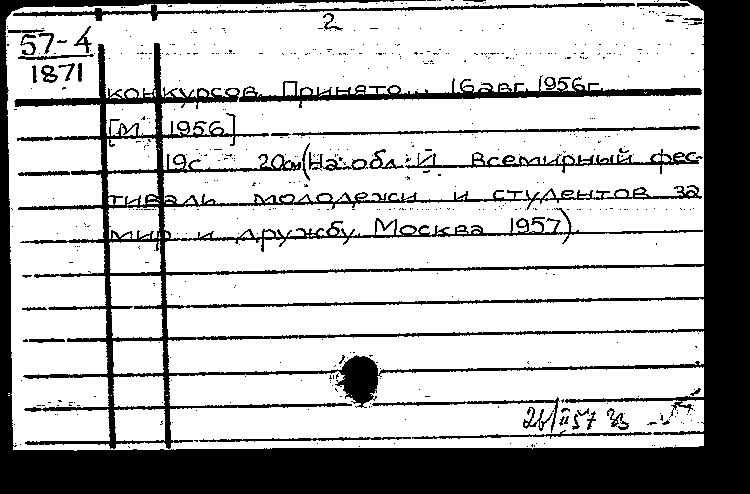 2
57-4
1871
конкурсов. Принято... 16 авг. 1956г.
[М. 1956]
19с. 20см (На обл.: Й Всемирный фес-
тиваль молодежи и студентов за
мир и дружбу. Москва 1957).
26/II 57